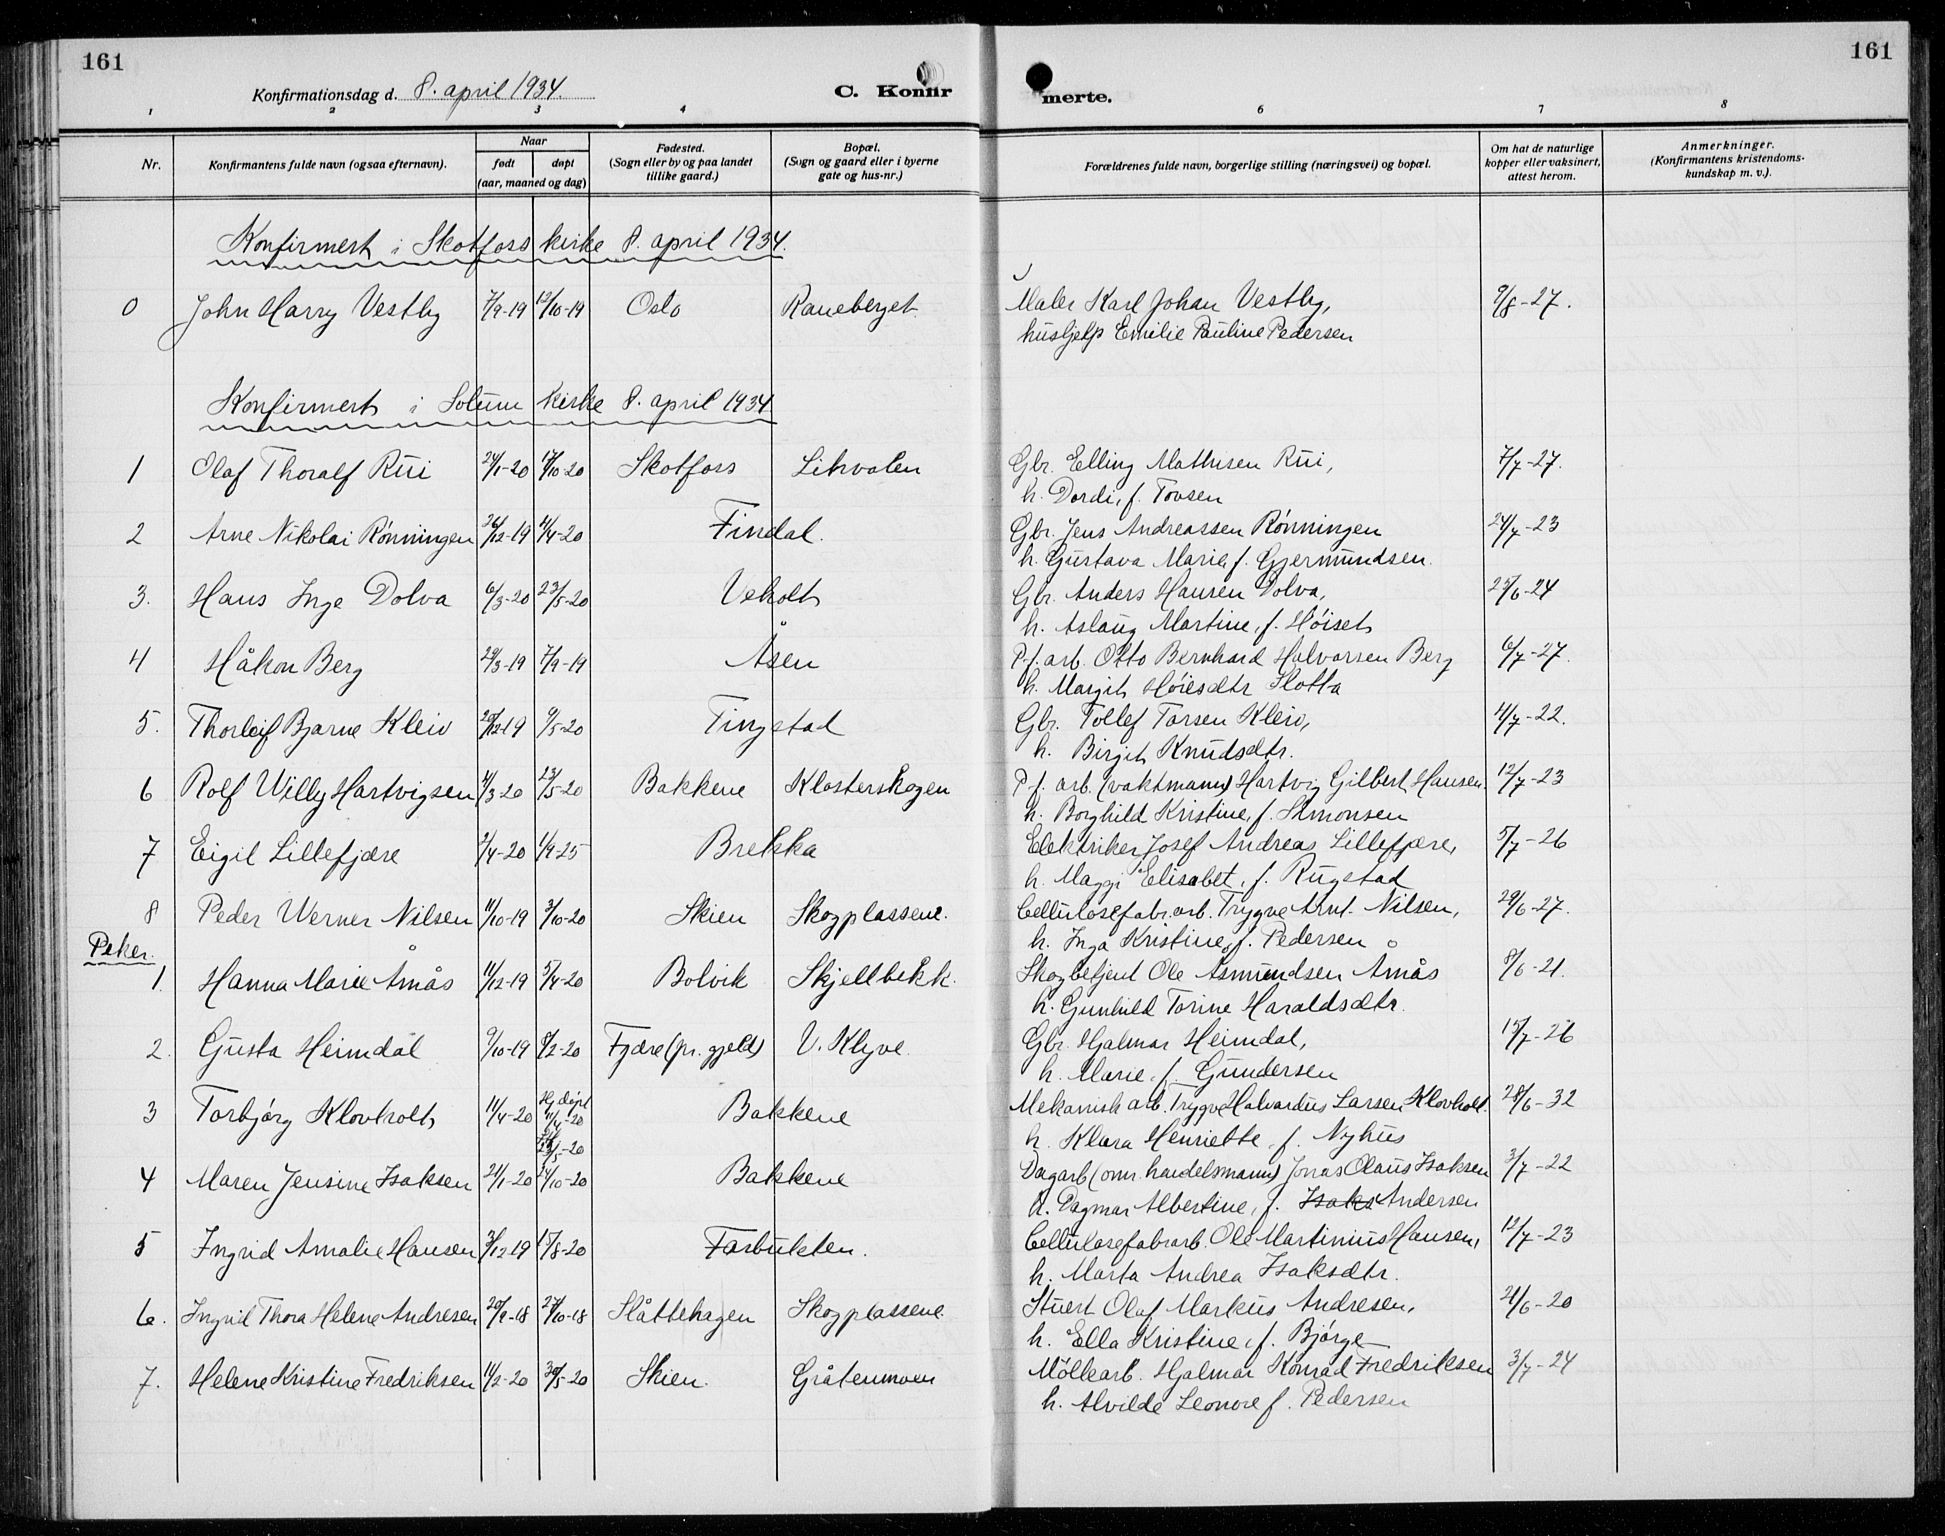 161
161
Konfirmationsdag d. 8. april 1934.
C. Konfir
merte.
1 2 3 4 6 7 8
Nr.
Konfirmantens fulde navn (ogsaa efternavn).
Naar
født
døpt
(aar, maaned og dag)
Fødested.
(Sogn eller by og paa landet
tillike gaard.)
Bopæl.
(Sogn og gaard eller i byerne
gate og hus-nr.)
Forældrenes fulde navn, borgerlige stilling (næringsvei) og bopæl.
Om hat de naturlige
kopper eller vaksinert,
attest herom.
Anmerkninger.
(Konfirmantens kristendoms-
kundskap m. v.).
Konfirmert i Skotfoss kirke 8. april 1934.
0 John Harry Vestby 7/9-19 19/10-19 Oslo Raneberget. Maler Karl Johan Vestby, 9/8-27.
hushjelp Emilie Pauline Pedersen
Konfirmert i Solum kirke 8. april 1934
1 Olaf Thoralf Rui 24/1-20 17/10-20 Skotfoss Likvolen Gbr. Elling Mathisen Rui, 7/7-27.
h. Dordi, f. Tovsen
2 Arne Nikolai Rønningen 26/12-19 4/4-20 Findal. Gbr. Jens Andreassen Rønningen 24/7-23
h. Gustava Marie, f. Gjermundsen.
3. Hans Inge Dolva 6/3-20 23/5-20 Veholt Gbr. Anders Hansen Dolva, 25/6-24
h. Aslaug Martine, f. Høiset
4 Håkon Berg 29/3-19 7/9-19 Åsen P.f. arb. Otto Bernhard Halvorsen Berg 6/7-27.
h. Margit Høiesdtr Slotta
5. Thorleif Bjarne Kleiv 29/12-19 9/5-20 Tingstad Gbr. Tollef Torsen Kleiv, 4/7-22.
h. Birgit Knudsdtr.
6 Rolf Willy Hartvigsen 4/3-20 23/5-20 Bakkene Klosterskogen P.f. arb. (vaktmann) Hartvig Gilbert Hansen. 12/7-23
h. Borghild Kristine, f. Simonsen
7 Eigil Lillefjære 2/4-20 1/9-25 Brekka Elektriker Josef Andreas Lillefjære, 5/7-26
h. Maggi Elisabet, f. Rugstad
8 Peder Werner Nilsen 11/10-19 3/10-20 Skien Skogplassene. Cellulosefabr.arb. Trygve Arnt. Nilsen, 29/6-27.
h. Inga Kristine, f. Pedersen
Piker.
1. Hanna Marie Åmås 11/12-19 5/4-20 Bolvik Skjellbekk. Skogbetjent Ole Asmundsen Åmås 8/6-21.
h. Gunhild Torine Haraldsdtr.
2. Gusta Heimdal 9/10-19 8/2-20 Fjære (pr. gjeld) V. Klyve. Gbr. Hjalmar Heimdal, 15/7-26
h. Marie, f. Gundersen
3 Torbjørg Klovholt 11/4-20 Hj.døpt 11/4-20 23/5-20 Bakkene Mekanisk arb. Trygve Halvardus Larsen Klovholt. 28/6-32
h. Klara Henriette, f. Nyhus
4 Maren Jensine Isaksen 21/1-20 24/10-20 Bakkene Dagarb. (omr. handelsmann) Jonas Olaus Isaksen 3/7-22
h. Dagmar Albertine, f. Isaks Andersen
5 Ingrid Amalie Hansen 3/12-19 15/8-20 Farbukten. Cellulosefabrarb. Ole Martinius Hansen, 12/7-23
h. Marta Andrea Isaksdtr.
6. Ingrid Thora Helene Andresen 20/9-18 27/10-18 Slåttehagen Skogplassene. Stuert Olaf Markus Andresen, 21/6-20
h. Ella Kristine, f. Bjørge
7. Helene Kristine Fredriksen 11/2-20 30/5-20 Skien. Gråtenmoen Møllearb. Hjalmar Konrad Fredriksen 3/7-24
h. Alvilde Leonore f. Pedersen